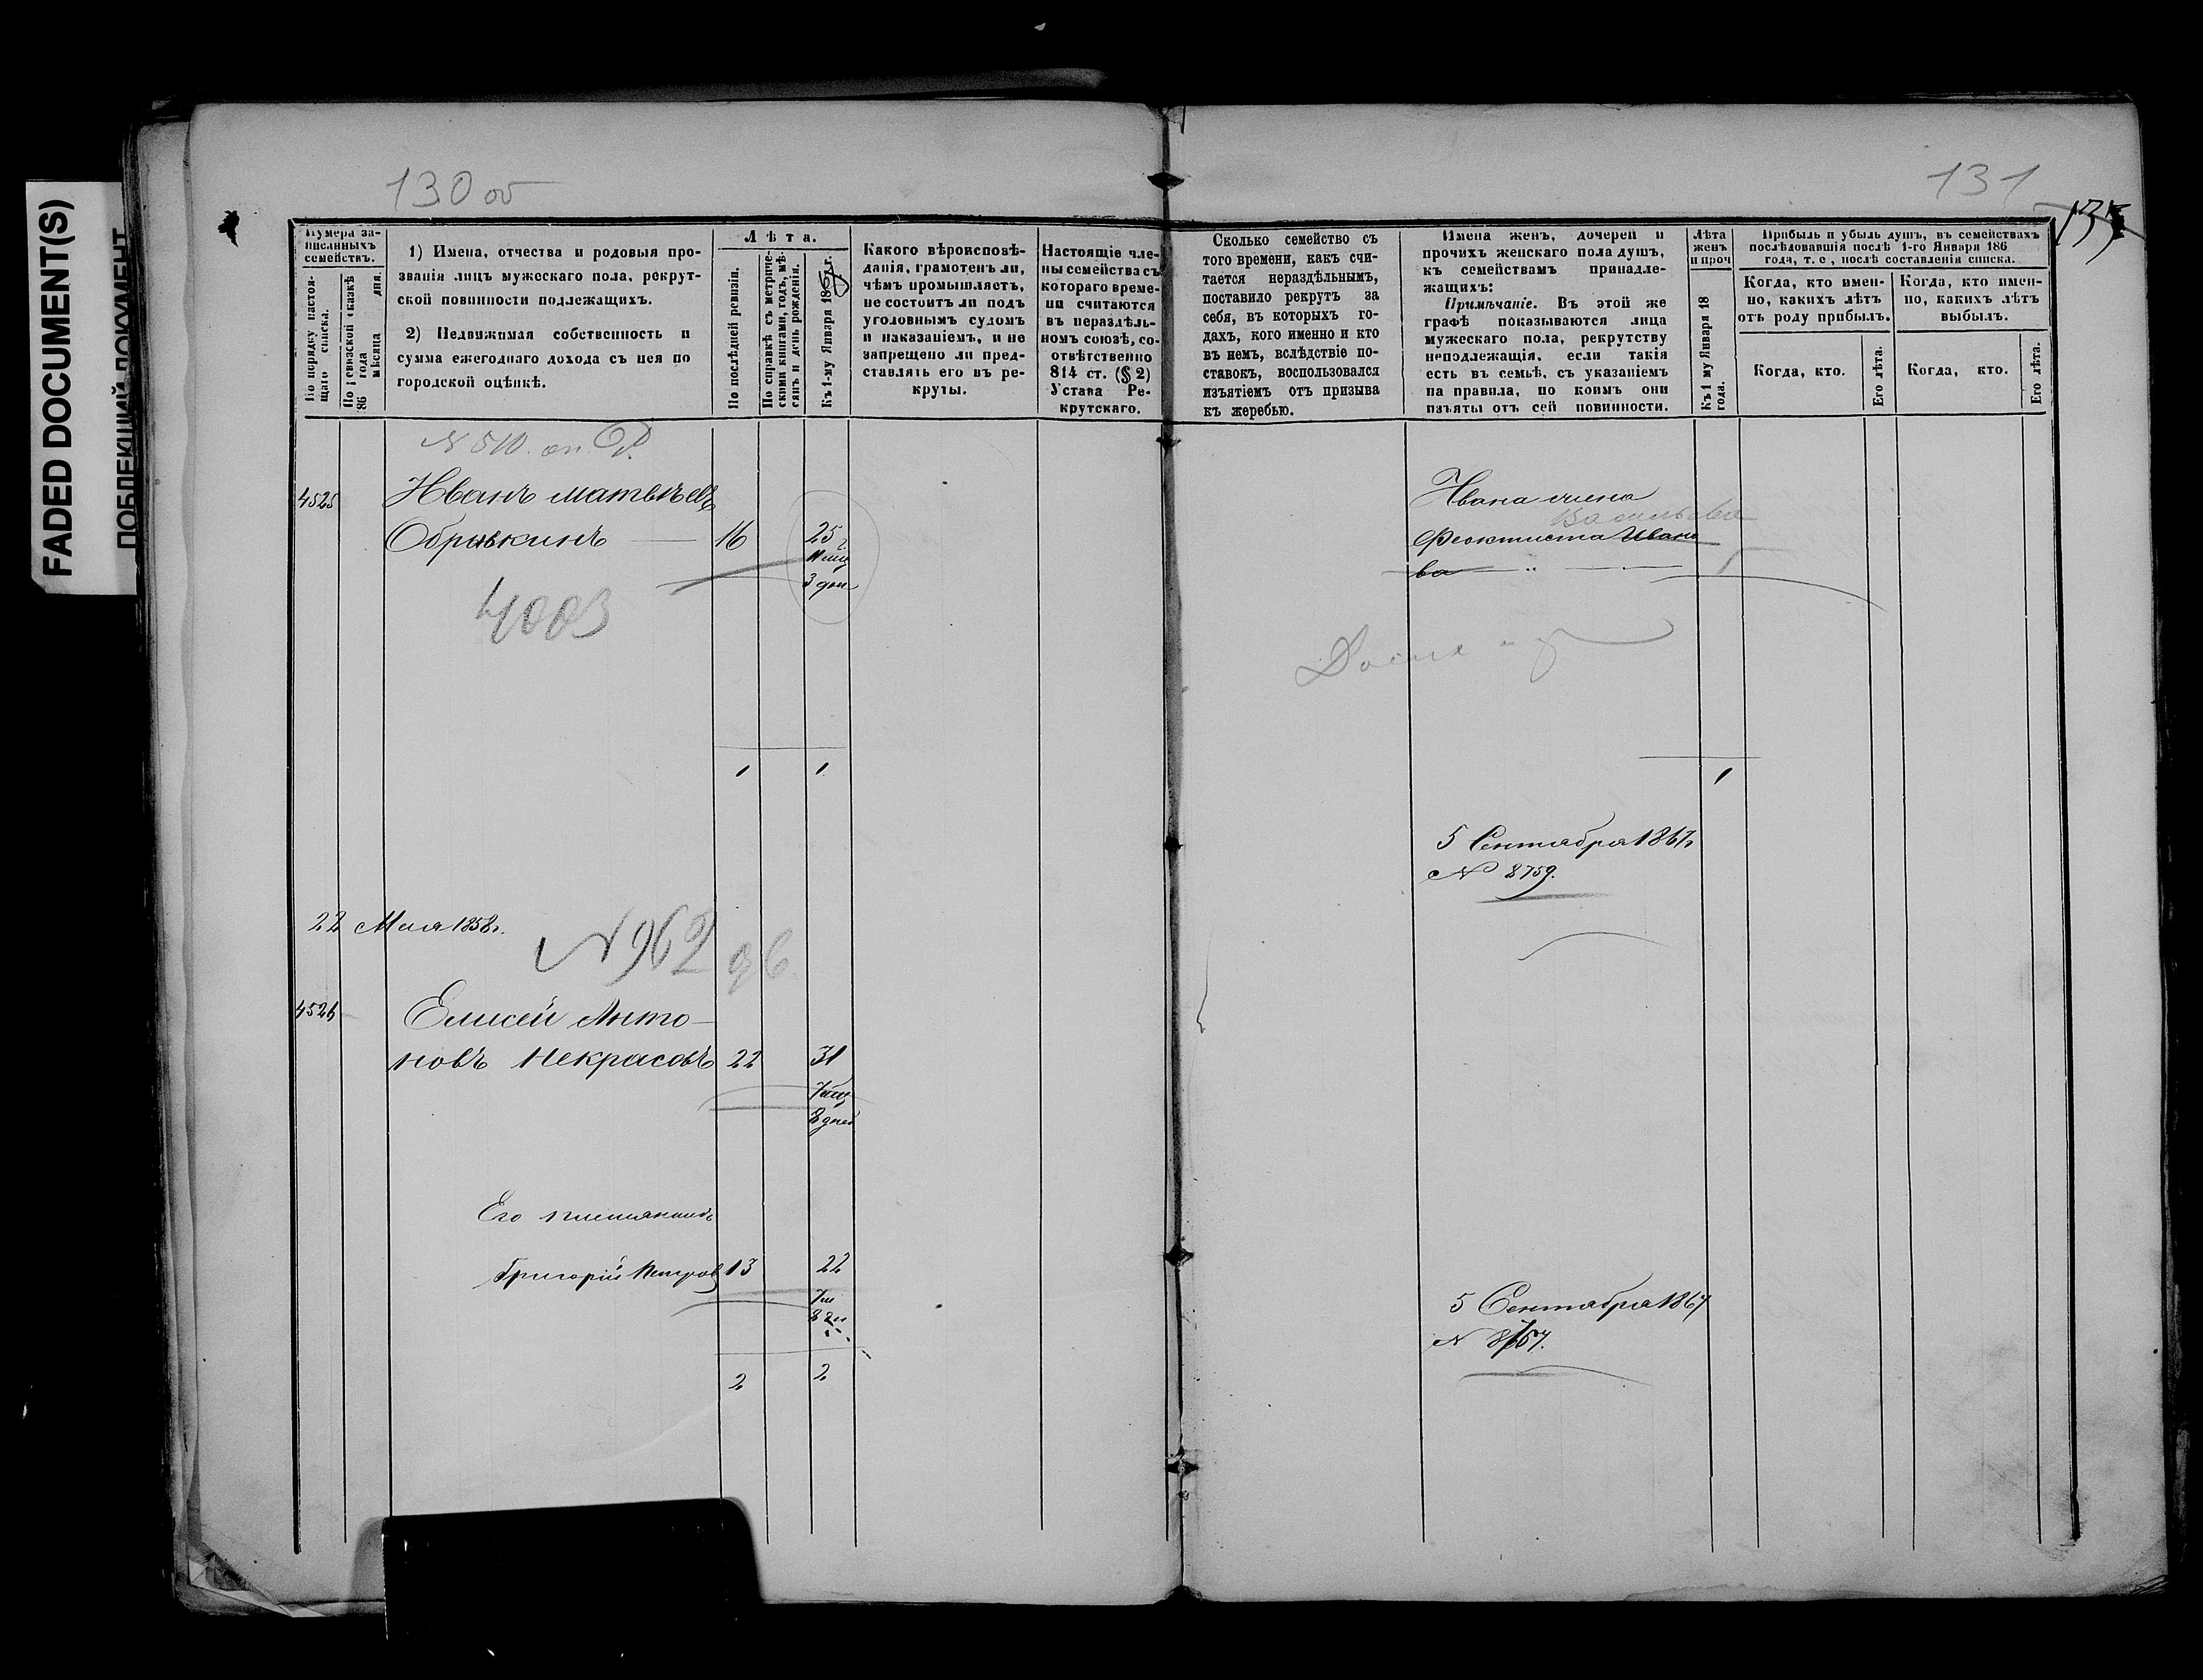 FADED DOCUMENT(S)
130 об
131
135
Нумера за-
писанныхъ
семействъ.
По порядку настоя-
щаго списка.
По ревизской сказкѣ
186 года
мѣсяца дня.
1) Имена, отчества и родовыя про-
званія лицъ мужескаго пола, рекрут-
ской повинности подлежащихъ.
2) Недвижимая собственность и
сумма ежегоднаго дохода съ нея по
городской оцѣнкѣ.
Лѣта.
По послѣдней ревизіи.
По справкѣ съ метриче-
скими книгами, годъ, мѣ-
сяцъ и день рожденія.
Къ 1-му Января 1867 г.
Какого вѣроисповѣ-
данія, грамотенъ ли,
чѣмъ промышляетъ,
не состоитъ ли подъ
уголовнымъ судомъ
и наказаніемъ, и не
запрещено ли пред-
ставлять его въ ре-
круты.
Настоящіе чле-
ны семейства съ
котораго време-
ни считаются
въ нераздѣль-
номъ союзѣ, со-
отвѣтственно
814 ст. (§ 2)
Устава Ре-
крутскаго.
Сколько семейство съ
того времени, какъ счи-
тается нераздѣльнымъ,
поставило рекрутъ за
себя, въ которыхъ го-
дахъ, кого именно и кто
въ немъ, вслѣдствіе по-
ставокъ, воспользовался
изъятіемъ отъ призыва
къ жеребью.
Имена женъ, дочерей и
прочихъ женскаго пола душъ,
къ семействамъ принадле-
жащихъ:
Примѣчаніе. Въ этой же
графѣ показываются лица
мужескаго пола, рекрутству
неподлежащія, если такія
есть въ семьѣ, съ указаніемъ
на правила, по коимъ они
изъяты отъ сей повинности.
Лѣта
женъ
и проч
Къ 1 му Января 18
года.
Прибыль и убыль душъ, въ семействахъ
послѣдовавшія послѣ 1-го Января 186
года, т. е, послѣ составленія списка.
Когда, кто имен-
но, какихъ лѣтъ
отъ роду прибылъ.
Когда, кто имен-
но, какихъ лѣтъ
выбылъ.
Когда, кто.
Его лѣта.
Когда, кто.
Его лѣта.
N 510.
4525
Иванъ Матвѣевъ
Обрывкинъ 16 25
3 дни
4003
Ивана жена
Васильева
Феоктиста Ивано
ва
1 1 1
5 Сентября 1867
N 8759.
22 Мая 1858 г.
N 962
4526
Елисей Анто-
новъ Некрасовъ 22 31
7 мѣц
8 дней
Его племянникъ
Григорій Петровъ 13 22
7 м
2 2
5 Сентября 1867
N 8757.